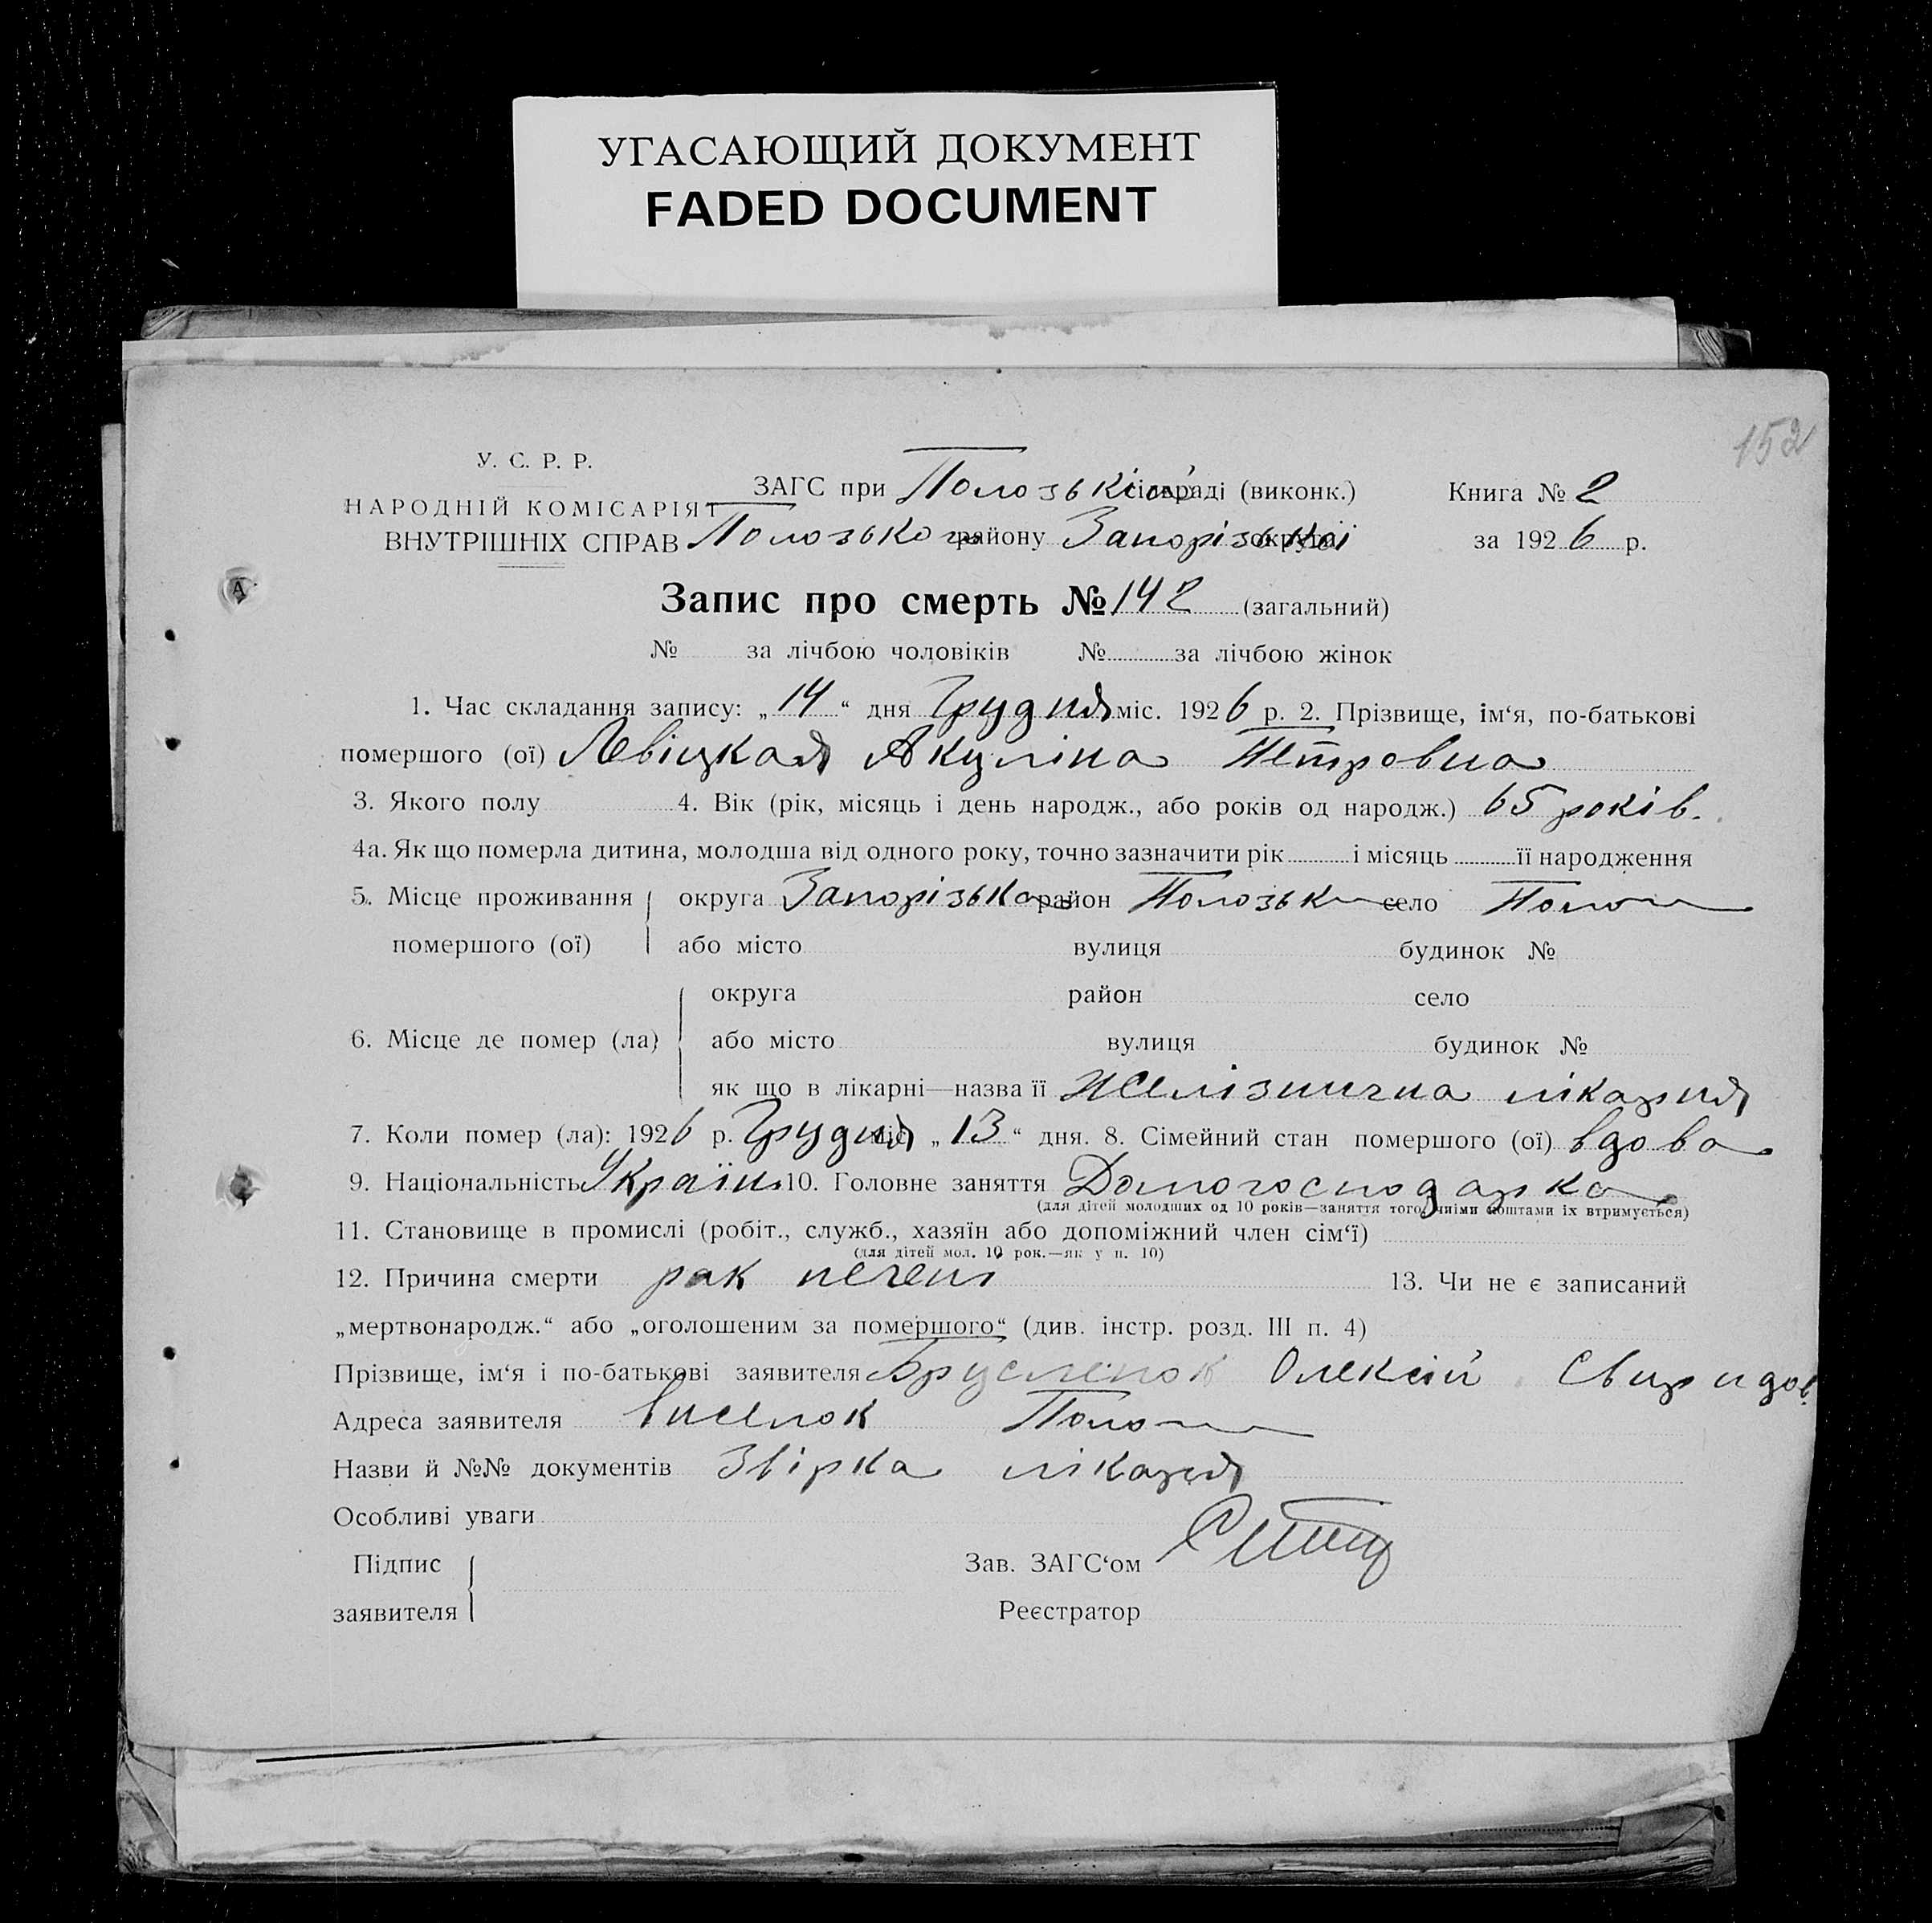 УГАСАЮЩИЙ ДОКУМЕНТ
FADED DOCUMENT
152
У. С. Р. Р.
НАРОДНІЙ КОМІСАРІЯТ
ВНУТРІШНІХ СПРАВ
ЗАГС при Полозькій сільраді (виконк.) Книга № 2
Полозького району Запорізької округи за 1926 р.
Запис про смерть № 142 (загальний)
№ за лічбою чоловіків № за лічбою жінок
1. Час складання запису: „14“ дня Грудня міс. 1926 р. 2. Прізвище, ім‘я, по-батькові
помершого (ої) Левіцкая Акуліна Петровна
3. Якого полу 4. Вік (рік, місяць і день народж., або років од народж.) 65 років.
4а. Як що померла дитина, молодша від одного року, точно зазначити рік і місяць її народження
5. Місце проживання округа Запорізька район Полозьк село Полог
помершого (ої) або місто вулиця будинок №
округа район село
6. Місце де помер (ла) або місто вулиця будинок №
як що в лікарні—назва її Желізнична лікарня
7. Коли помер (ла): 1926 р. Грудня міс. „13“ дня. 8. Сімейний стан помершого (ої) вдова
9. Національність Україн. 10. Головне заняття Домогосподарка
(для дітей молодших од 10 років—заняття того, чиїми коштами їх втримується)
11. Становище в промислі (робіт., служб., хазяїн або допоміжний член сім‘ї)
(для дітей мол. 10 рок.—як у п. 10)
12. Причина смерти рак печені 13. Чи не є записаний
„мертвонародж.“ або „оголошеним за помершого“ (див. інстр. розд. III п. 4)
Прізвище, ім‘я і по-батькові заявителя Олексій Свиридов.
Адреса заявителя виселок Поло
Назви й №№ документів Звірка лікаря
Особливі уваги
Підпис
заявителя
Зав. ЗАГС‘ом
Реєстратор